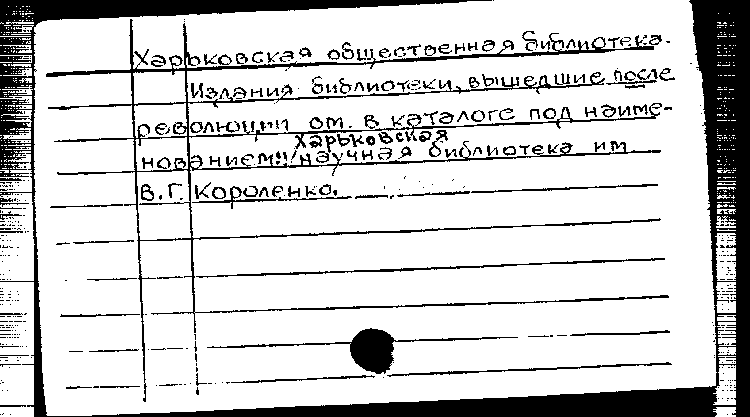 Харьковская общественная библиотека.
Издания библиотеки, вышедшие после
революции см. в каталоге под наиме-
нованием: Харьковская научная библиотека им.
В.Г. Короленко.